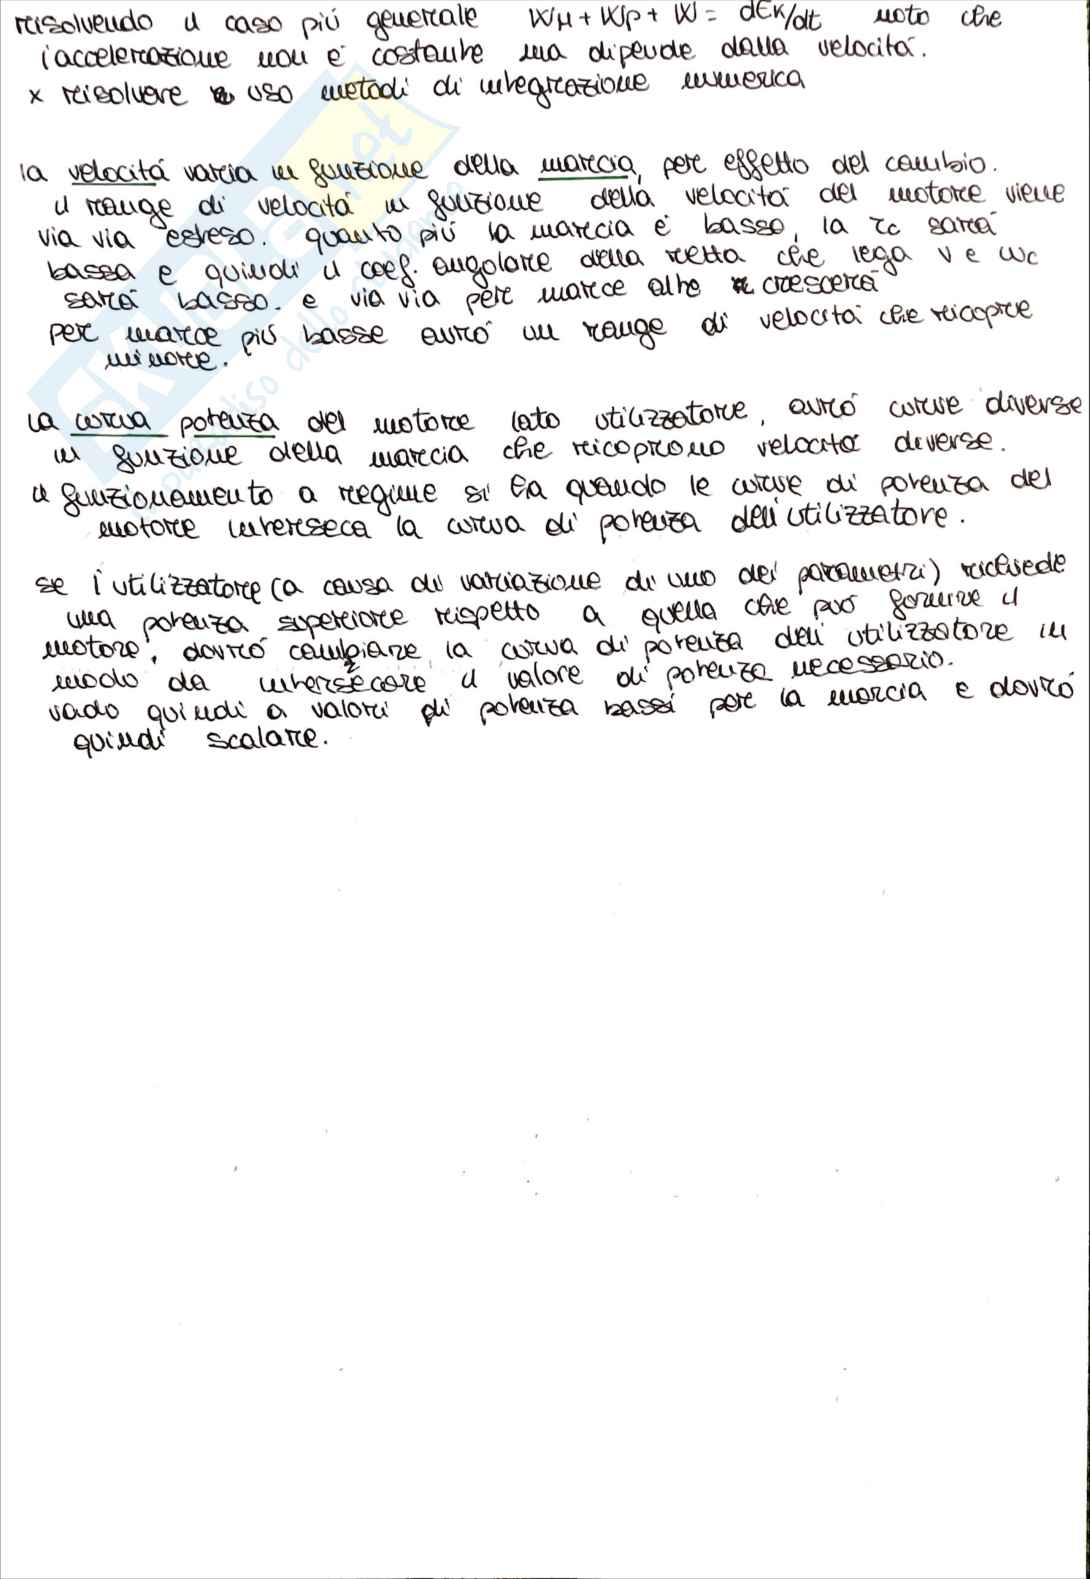 risolvendo il caso più generale WM + Wp + W = dEk/dt noto che
l'accelerazione non è costante ma dipende dalla velocità.
x risolvere uso metodi di integrazione numerica
la velocità varia in funzione della marcia, per effetto del cambio.
il range di velocità in funzione della velocità del motore viene
via via esteso. quanto più la marcia è basso, la τc sarà
bassa e quindi il coef. angolare della retta che lega v e wc
sarà basso. e via via per marce alte crescerà
per marce più basse avrò un range di velocità che ricopre
minore.
la curva potenza del motore lato utilizzatore, avrò curve diverse
in funzione della marcia che ricoprono velocità diverse.
il funzionamento a regime si ha quando le curve di potenza del
motore interseca la curva di potenza dell'utilizzatore.
se l'utilizzatore (a causa di variazione di uno dei parametri) richiede
una potenza superiore rispetto a quella che può fornire il
motore, dovrò cambiare la curva di potenza dell'utilizzatore in
modo da intersecare il valore di potenza necessario.
vado quindi a valori di potenza bassi per la marcia e dovrò
quindi scalare.
skuola.net
paradiso dello